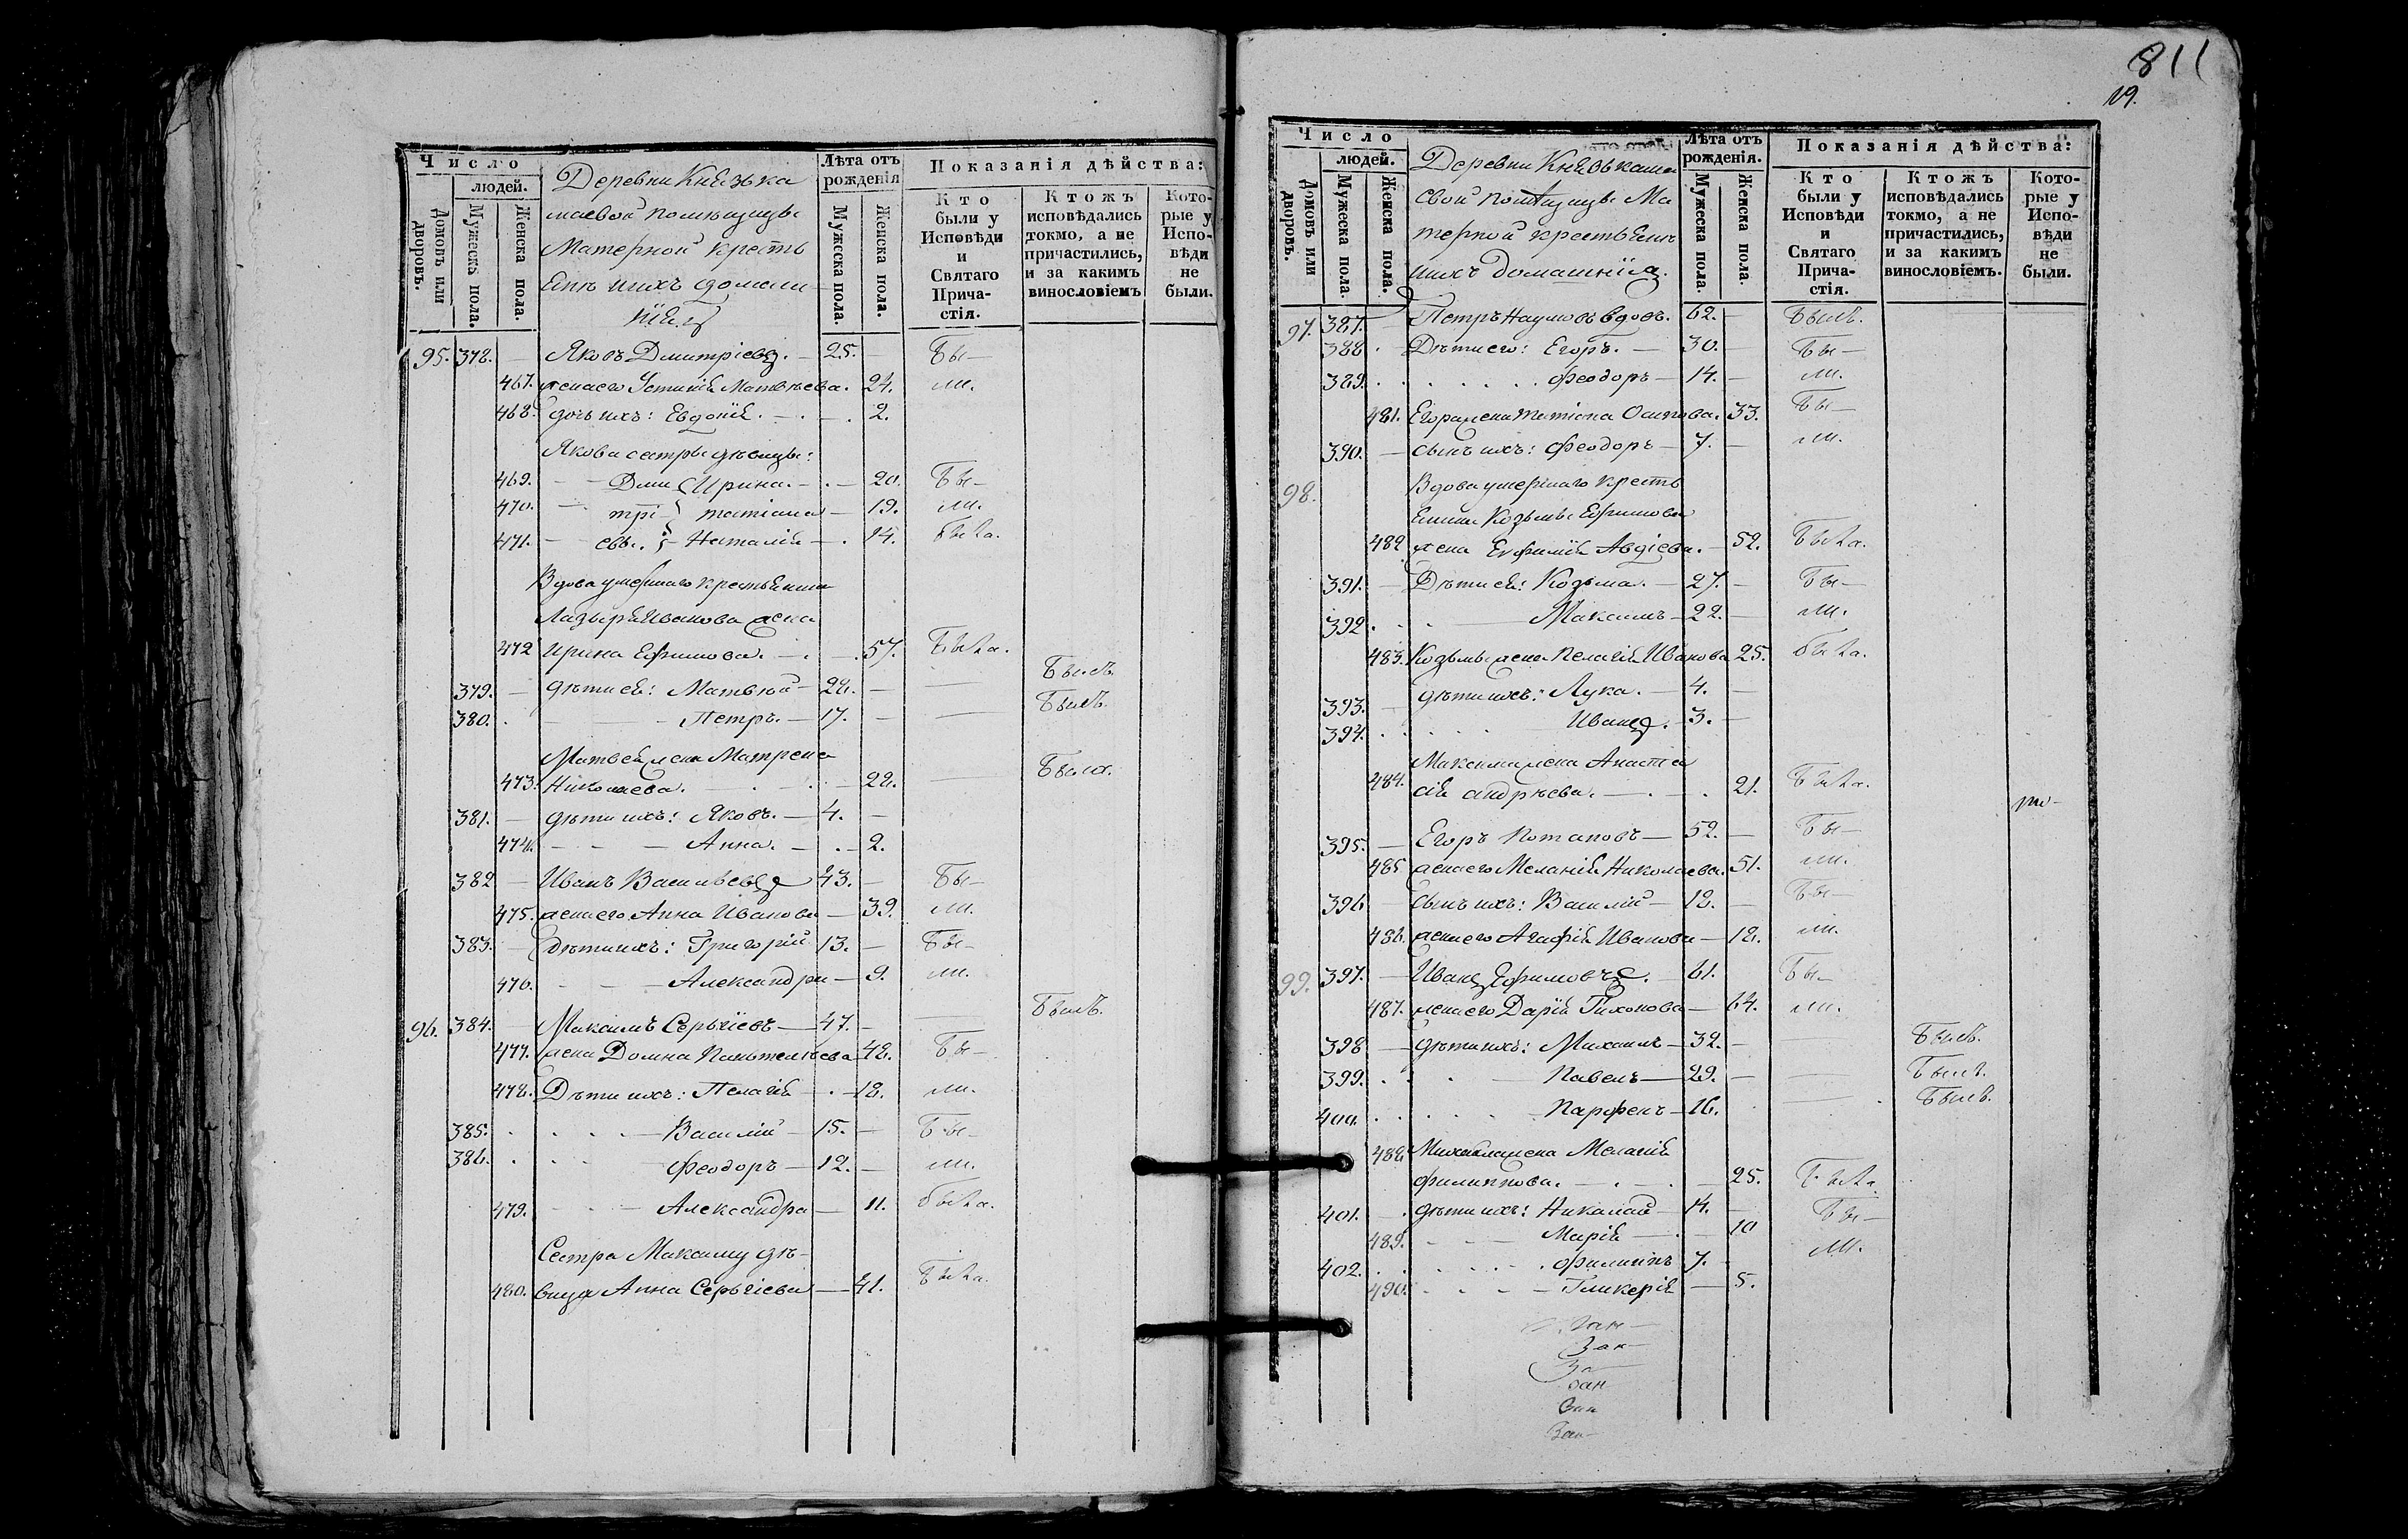 Число
людей.
Домовъ или дворовъ.
Мужескъ пола.
Женска пола.
Деревни Князька
маевой помѣщицы
Матерной кресть
янъ ихъ домаш
нія
Лѣта отъ рожденія
Мужеска пола.
Женска пола.
Показанія дѣйства:
Кто были у Исповѣди и Святаго Прича-стія.
Ктожъ исповѣдались токмо, а не причастились, и за какимъ винословіемъ
Кото-рые у Испо-вѣди не были.
95. 378. — Яковъ Дмитріевъ. — 25. — Бы—
467. жена его Устинія Матвѣева. 24. ли.
468. дочь ихъ: Евдокія. — . — . 2.
Якова сестры дѣвицы:
469. — Дми Ирина. — . — 20. Бы—
470. — трі Татіана — 19. ли.
471. — евы. Наталія — . 14. была.
Вдова умершаго крестьянина
Лазыря Иванова жена
472 Ирина Ефимова. — . — . 57. Была.
379. — дѣти ея: Матвѣй — 22. — — Былъ.
380. . — Петръ. — 17. — — Былъ.
Матвея жена Матрена
473. Николаева. — . — 22. — Была.
381. — дѣти ихъ: Яковъ. — 4. —
474. — — — Анна. — . — 2.
382 — Иванъ Васильевъ 43. — Бы—
475. жена его Анна Иванова — 39. ли.
383. — дѣти ихъ: Григорій 13. — Бы—
476. — — Александра — 9. ли.
96. 384. — Максимъ Сергіевъ — 47. — — Былъ.
477. жена Домна Пантелѣева 42. Бы—
478. Дѣти ихъ: Пелагія — . — 18. ли.
385. . . . — Василій — 15. — Бы—
386. . . . Феодоръ — 12. — ли.
479. — — Александра — 11. была.
Сестра Максиму дѣ-
480. вица Анна Сергіева — 41. Была.
811
19.
Число
людей.
Домовъ или дворовъ.
Мужеска пола.
Женска пола.
Деревни Князькама
евой помѣщицы Ма
терной крестьянъ
ихъ домашнія
Лѣта отъ рожденія.
Мужеска пола.
Женска пола.
Показанія дѣйства:
Кто были у Исповѣди и Святаго Прича-стія.
Ктожъ исповѣдались токмо, а не причастились, и за какимъ винословіемъ.
Кото-рые у Испо-вѣди не были.
97. 387. — Петръ Наумовъ вдовъ. 62. — Былъ.
388 . Дѣти его: Егоръ. — 30. — Бы—
389. . . . . . Феодоръ — 14. — ли.
481. Егора жена Татіана Осипова. 33. Бы—
390. — сынъ ихъ: Феодоръ — 7. — ли.
98. Вдова умершаго кресть
янина Козьмы Ефимова
482 жена Евфимія Авдіева. — 52. Была.
391. — Дѣти ея: Козьма. — 27. — Бы—
392. . . — Максимъ — 22. — ли.
483. Козьмы жена Пелагія Иванова 25. была.
393. — дѣти ихъ: Лука. — 4. —
394. . . . . Иванъ. — 3. —
Максима жена Анаста
484. сія Андрѣева. — . — . 21. Была.
395. — Егоръ Потаповъ — 52. — Бы—
485 жена его Меланія Николаева. 51. ли.
396 — сынъ ихъ: Василій — 18. — Бы—
486. жена его Агафія Иванова — 18. ли.
99. 397. — Иванъ Ефимовъ. — 61. Бы—
487. жена его Дарія Тихонова — 64. ли.
398 — дѣти ихъ: Михаилъ — 32. — — Былъ.
399. . . . — Павелъ — 29. — — Былъ.
400. . . . — Парфенъ — 26. — Былъ.
488 Михаила жена Мелагія
Филиппова. — . — . — 25. Была
401. — . дѣти ихъ: Николай — 14. — Бы—
489. — — Марія — . — 10
402. . . . . Филиппъ 7. — ли.
490. . . . — Гликерія — 5.
Зак—
Зак